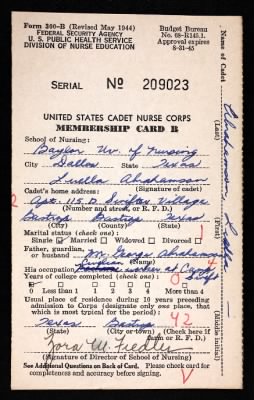 Form 300-B (Revised May 1944)
FEDERAL SECURITY AGENCY
U. S. PUBLIC HEALTH SERVICE
DIVISION OF NURSE EDUCATION
Budget Bureau
No. 68-R145.1.
Approval expires
8-31-45
SERIAL No 209023
UNITED STATES CADET NURSE CORPS
MEMBERSHIP CARD B
School of Nursing:
Baylor Univ. of Nursing
City Dallas State Texas
Luella Abrahamson
Cadet's home address: (Signature of cadet)
Apt. 115 D Village
(Number and street, or R. F. D.)
Bastrop Bastrop Texas
(City) (County) (State)
Marital status (check one): 1
Single Married Widowed Divorced
Father, guardian,
or husband Mr. George Abrahamson
His occupation Civilian worker at Camp
Years of college completed (check one):
0 Less than 1 1 2 3 4 More than 4
Usual place of residence during 10 years preceding
admission to Corps (designate only one place, that
which is most typical for the period): 42
Texas Bastrop
(State) (City or town) (Check here if
farm or R. F. D.)
Zora M. Fiedler
(Signature of Director of School of Nursing)
See Additional Questions on Back of Card. Please check for
completeness and accuracy before signing.
Name of Cadet
Abrahamson
(Last)
Luella
(First)
(Middle initial)